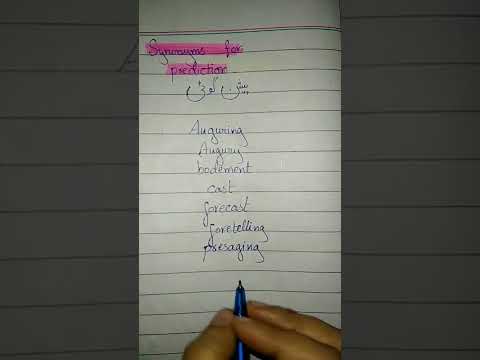 Synonyms for
prediction
پیشن گوئی
Auguring
Augury
bodement
cast
forecast
foretelling
presaging